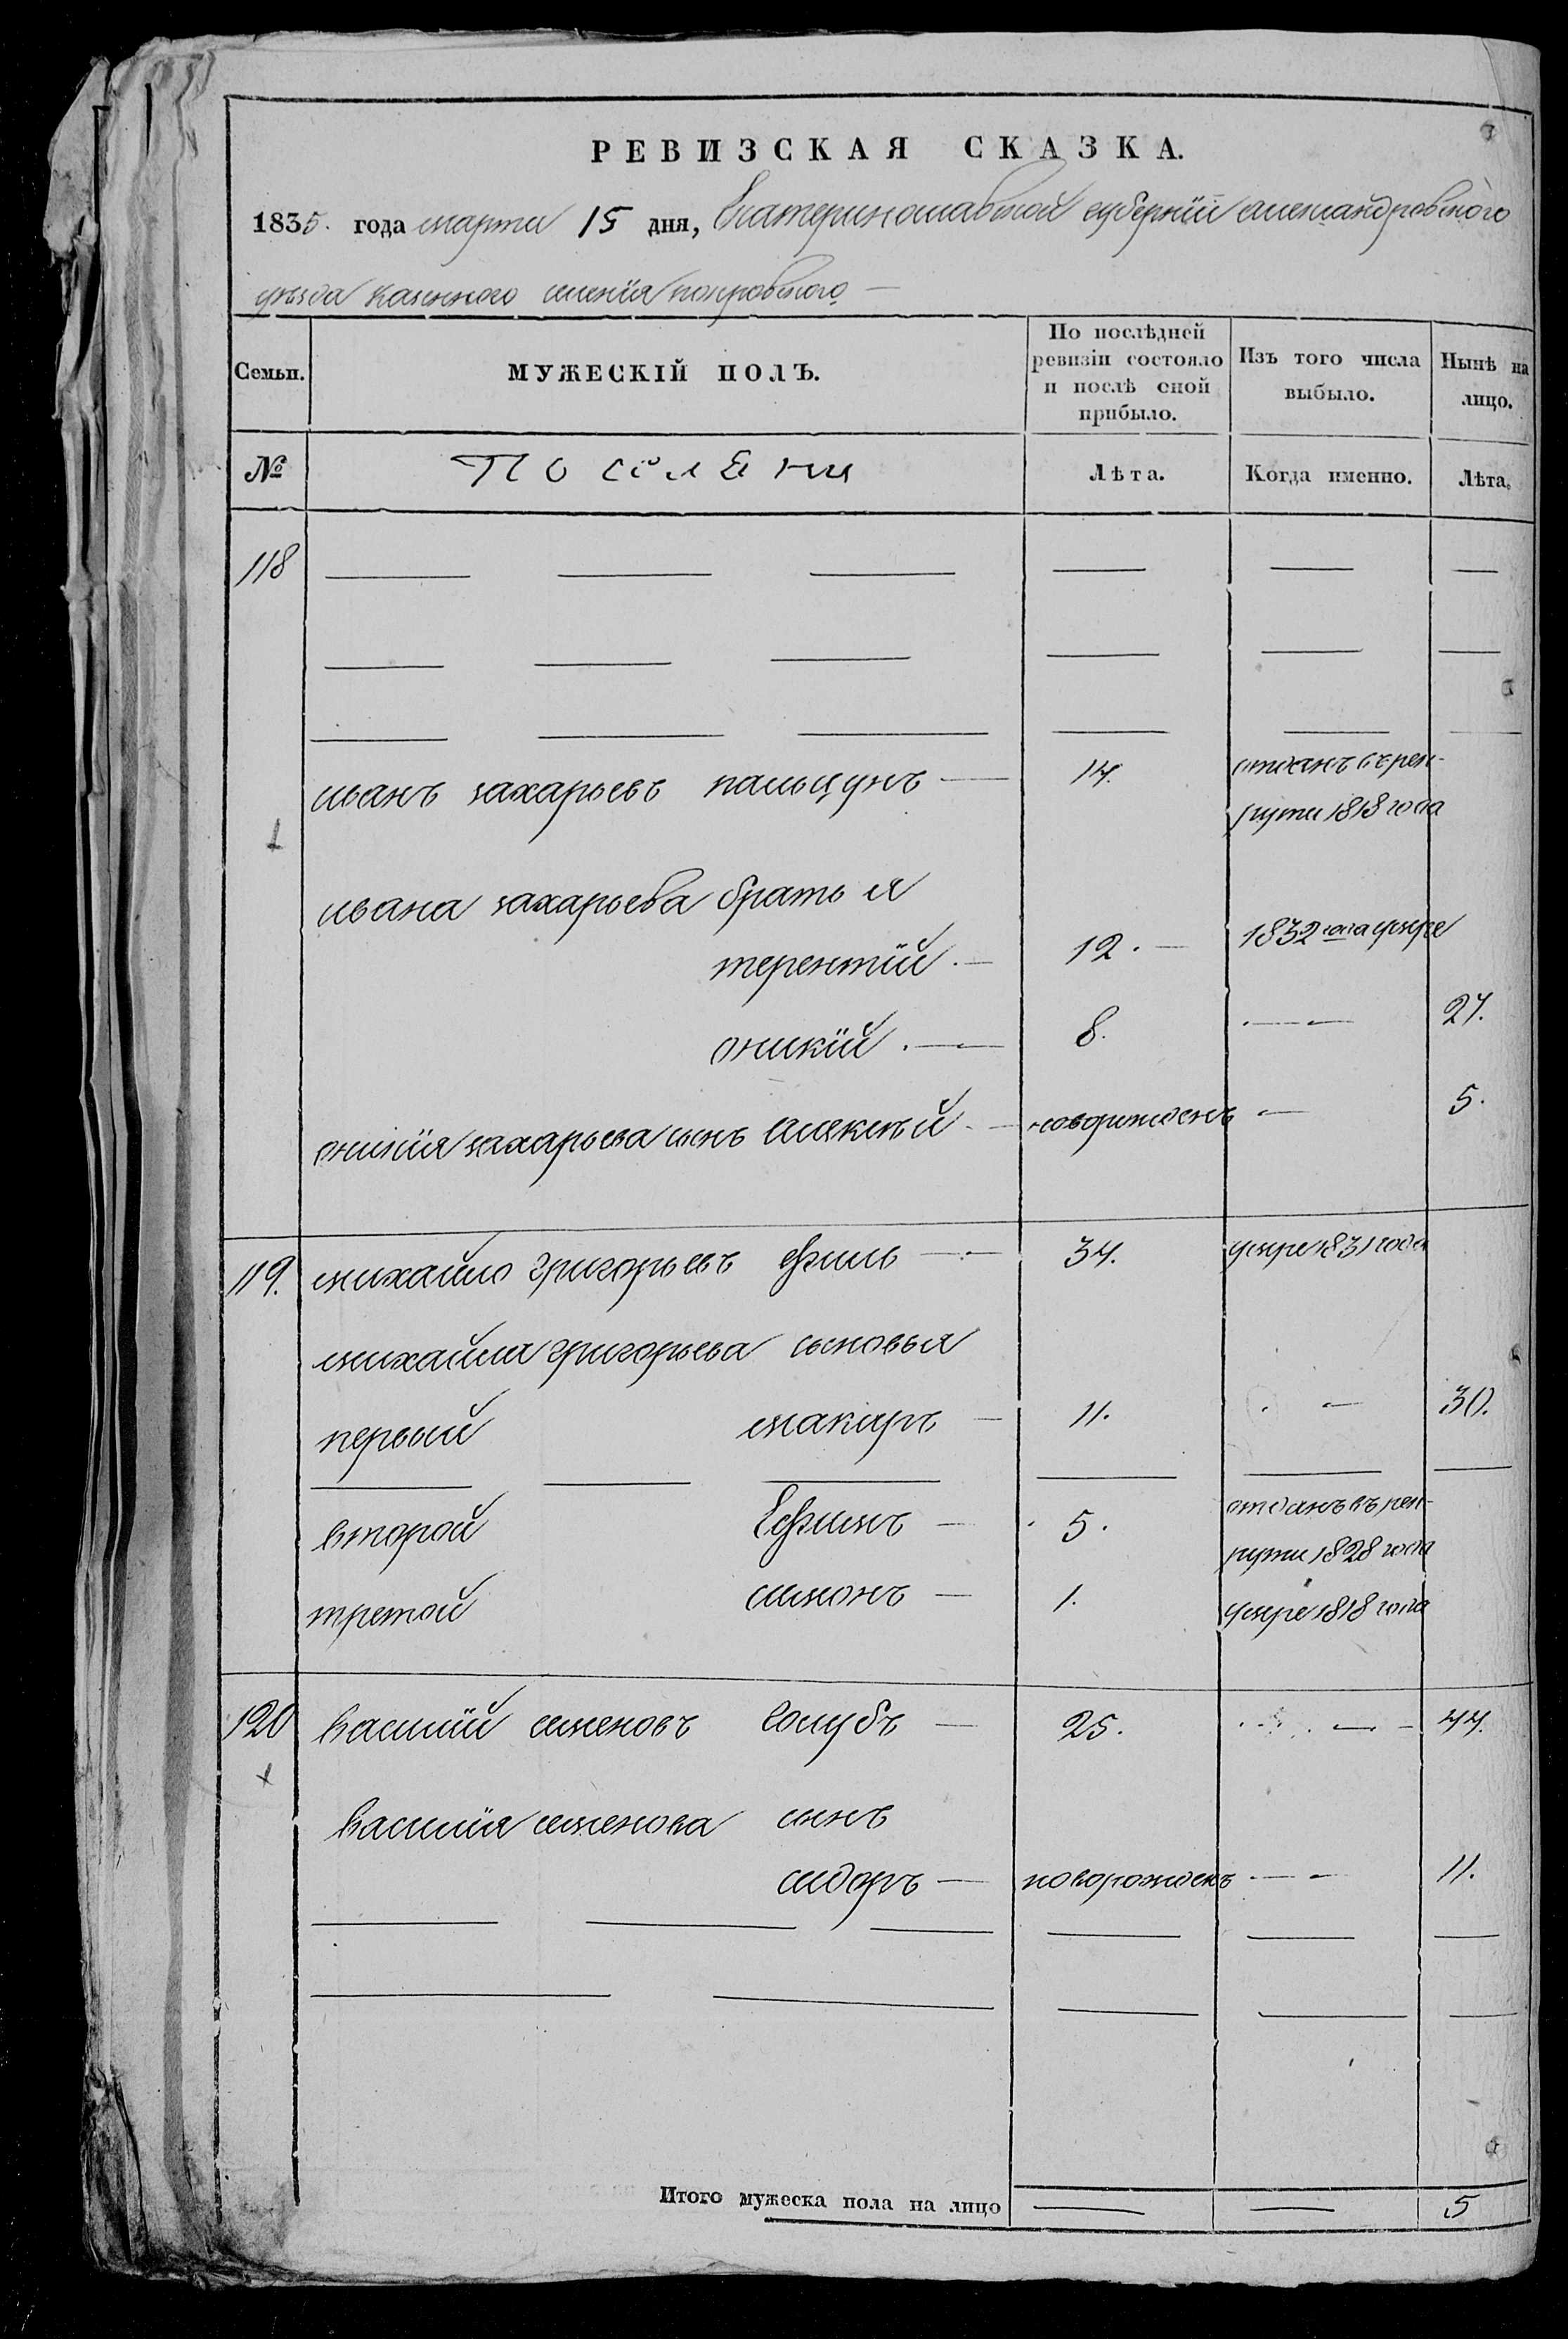 РЕВИЗСКАЯ СКАЗКА.
1835. года марта 15 дня, Екатеринославской губернии александровского
уезда казенного селения покровского —
Семьи. МУЖЕСКІЙ ПОЛЪ. По послѣдней ревизіи состояло и послѣ оной прибыло. Изъ того числа выбыло. Нынѣ на лицо.
№ поселяни Лѣта. Когда именно. Лѣта.
118
иванъ захарьевъ пальцунъ — 14. отданъ въ рек-
руты 1818 года
ивана захарьева братья
терентій — 12. — 1832 года умре
оникій — 8. — 27.
оникія захарьева сынъ алексѣй — новорожденъ — 5.
119. михайло григорьевъ ефиль — 34. умре 1831 года
михайла григорьева сыновья
первый макаръ — 11. — 30.
второй Ефимъ — 5. отданъ въ рек-
руты 1828 года
третой симонъ — 1. умре 1818 года
120 василій семеновъ голубъ — 25. — 44.
василия семенова сынъ
сидоръ — новорожденъ — 11.
Итого мужеска пола на лицо — — 5